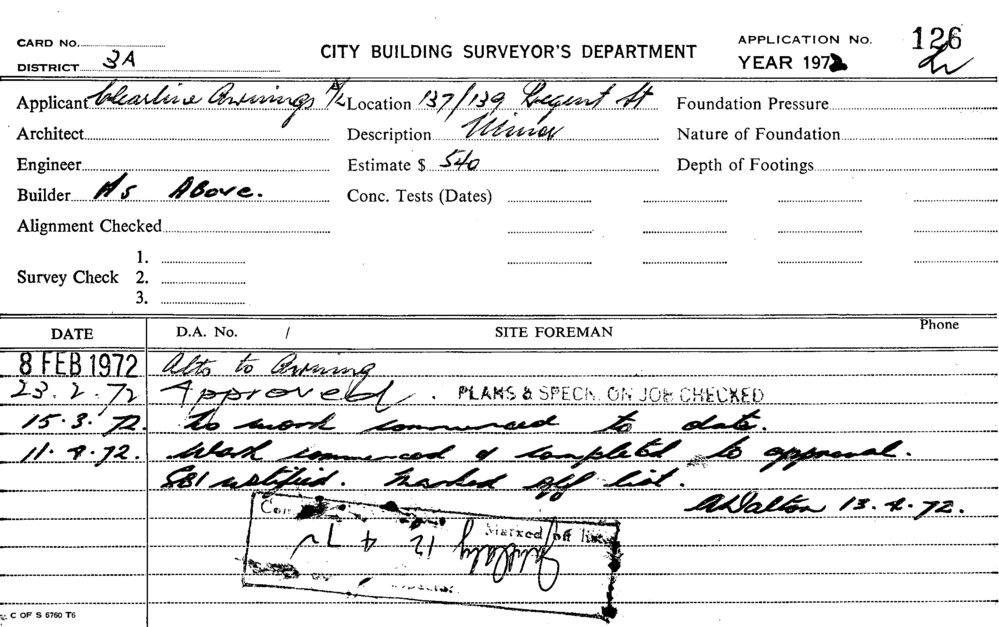 CARD NO.
CITY BUILDING SURVEYOR'S DEPARTMENT
APPLICATION No. 126
DISTRICT 3A
YEAR 1972
Applicant Clearline Awnings P/L Location 137/139 Regent St Foundation Pressure
Architect Description Minor Nature of Foundation
Engineer Estimate $ 540 Depth of Footings
Builder As Above. Conc. Tests (Dates)
Alignment Checked
1.
Survey Check 2.
3.
DATE D.A. No. / SITE FOREMAN Phone
8 FEB 1972 Alts to Awning
23.2.72 Approved. PLANS & SPECN. ON JOB CHECKED
15.3.72. No work commenced to date.
11.4.72. Work commenced & completed to approval.
SBI notified. Marked off list.
A Dalton 13.4.72.
Marked off list
12 4 72
C OF S 6760 T6